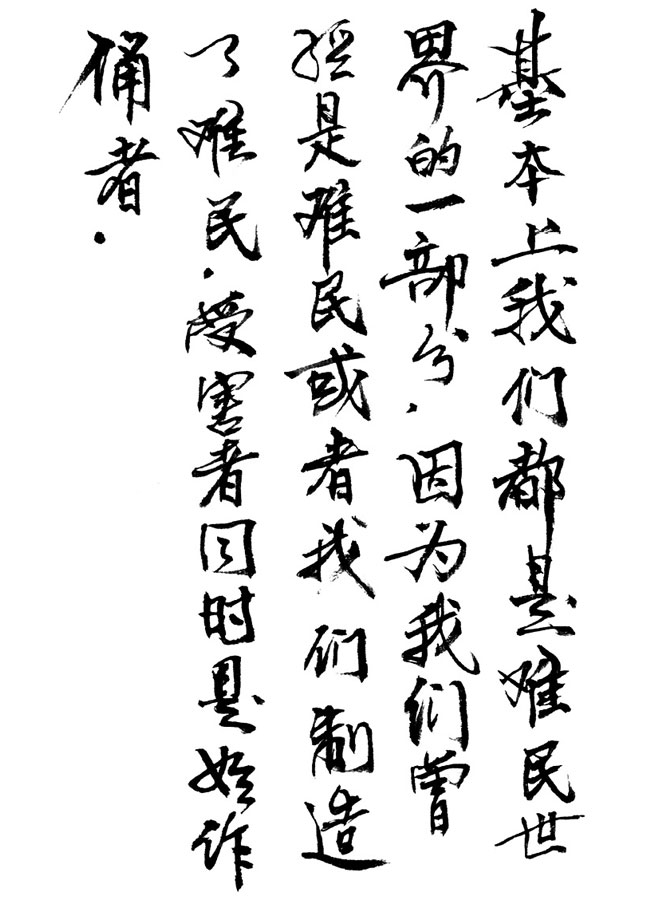 基本上我们都是难民世
界的一部分.因为我们曾
经是难民或者我们制造
了难民.受害者同时是始作
俑者.